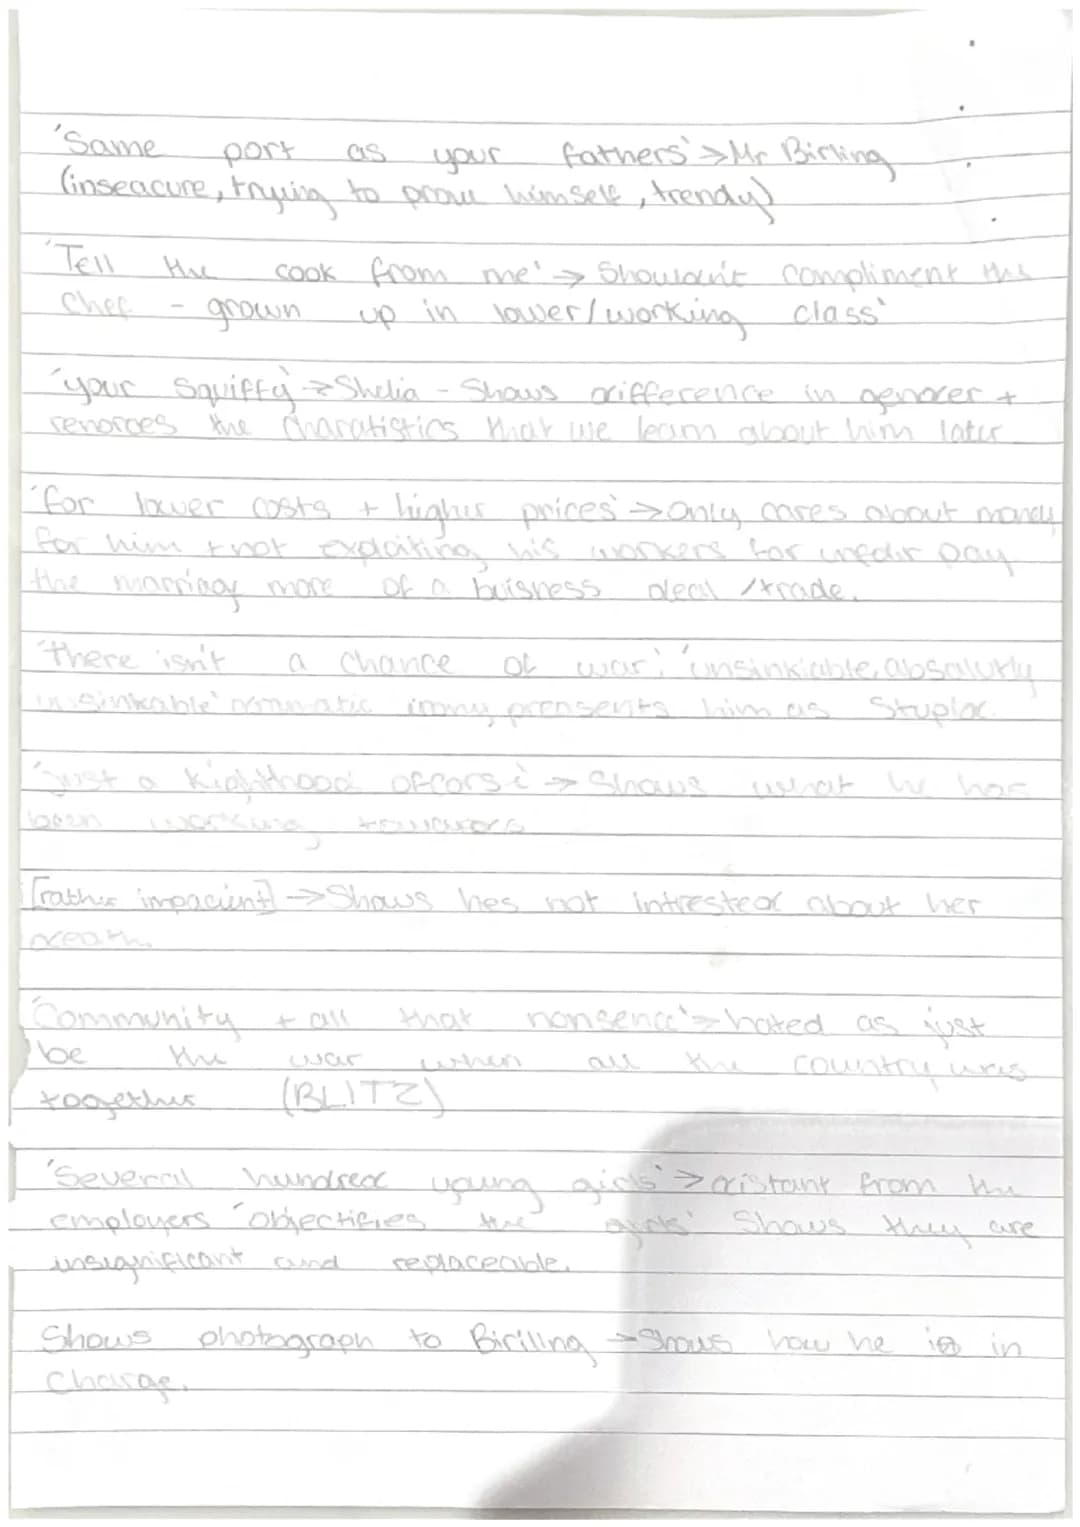 'Same port as your fathers' → Mr Birling
(inseacure, trying to prove himself, trendy)
'Tell the cook from me' → Shouldn't compliment the
chef - grown up in lower/working class'
'your Squiffy' → Shelia - Shows difference in gender +
renorces the charatistics that we learn about him later
'for lower costs + higher prices' → Only cares about money
for him + not explaiting his workers for unfair pay
the marriage more of a buisness deal /trade.
'there isn't a chance of war', 'unsinkiable, absalutly
unsinkable' dramatic irony, prensents him as Stupid.
'just a kighthood offcorse' → Shows what he has
been working towards
[rather impacient] → Shows hes not intrested about her
death.
'Community + all that nonsence' → hated as just
be the war when all the country was
together (BLITZ)
'Several hundred young girls' → distant from the
employers 'objectifies the girls' Shows they are
insignificant and replaceable.
Shows photograph to Biriling → Shows how he is in
Charge.